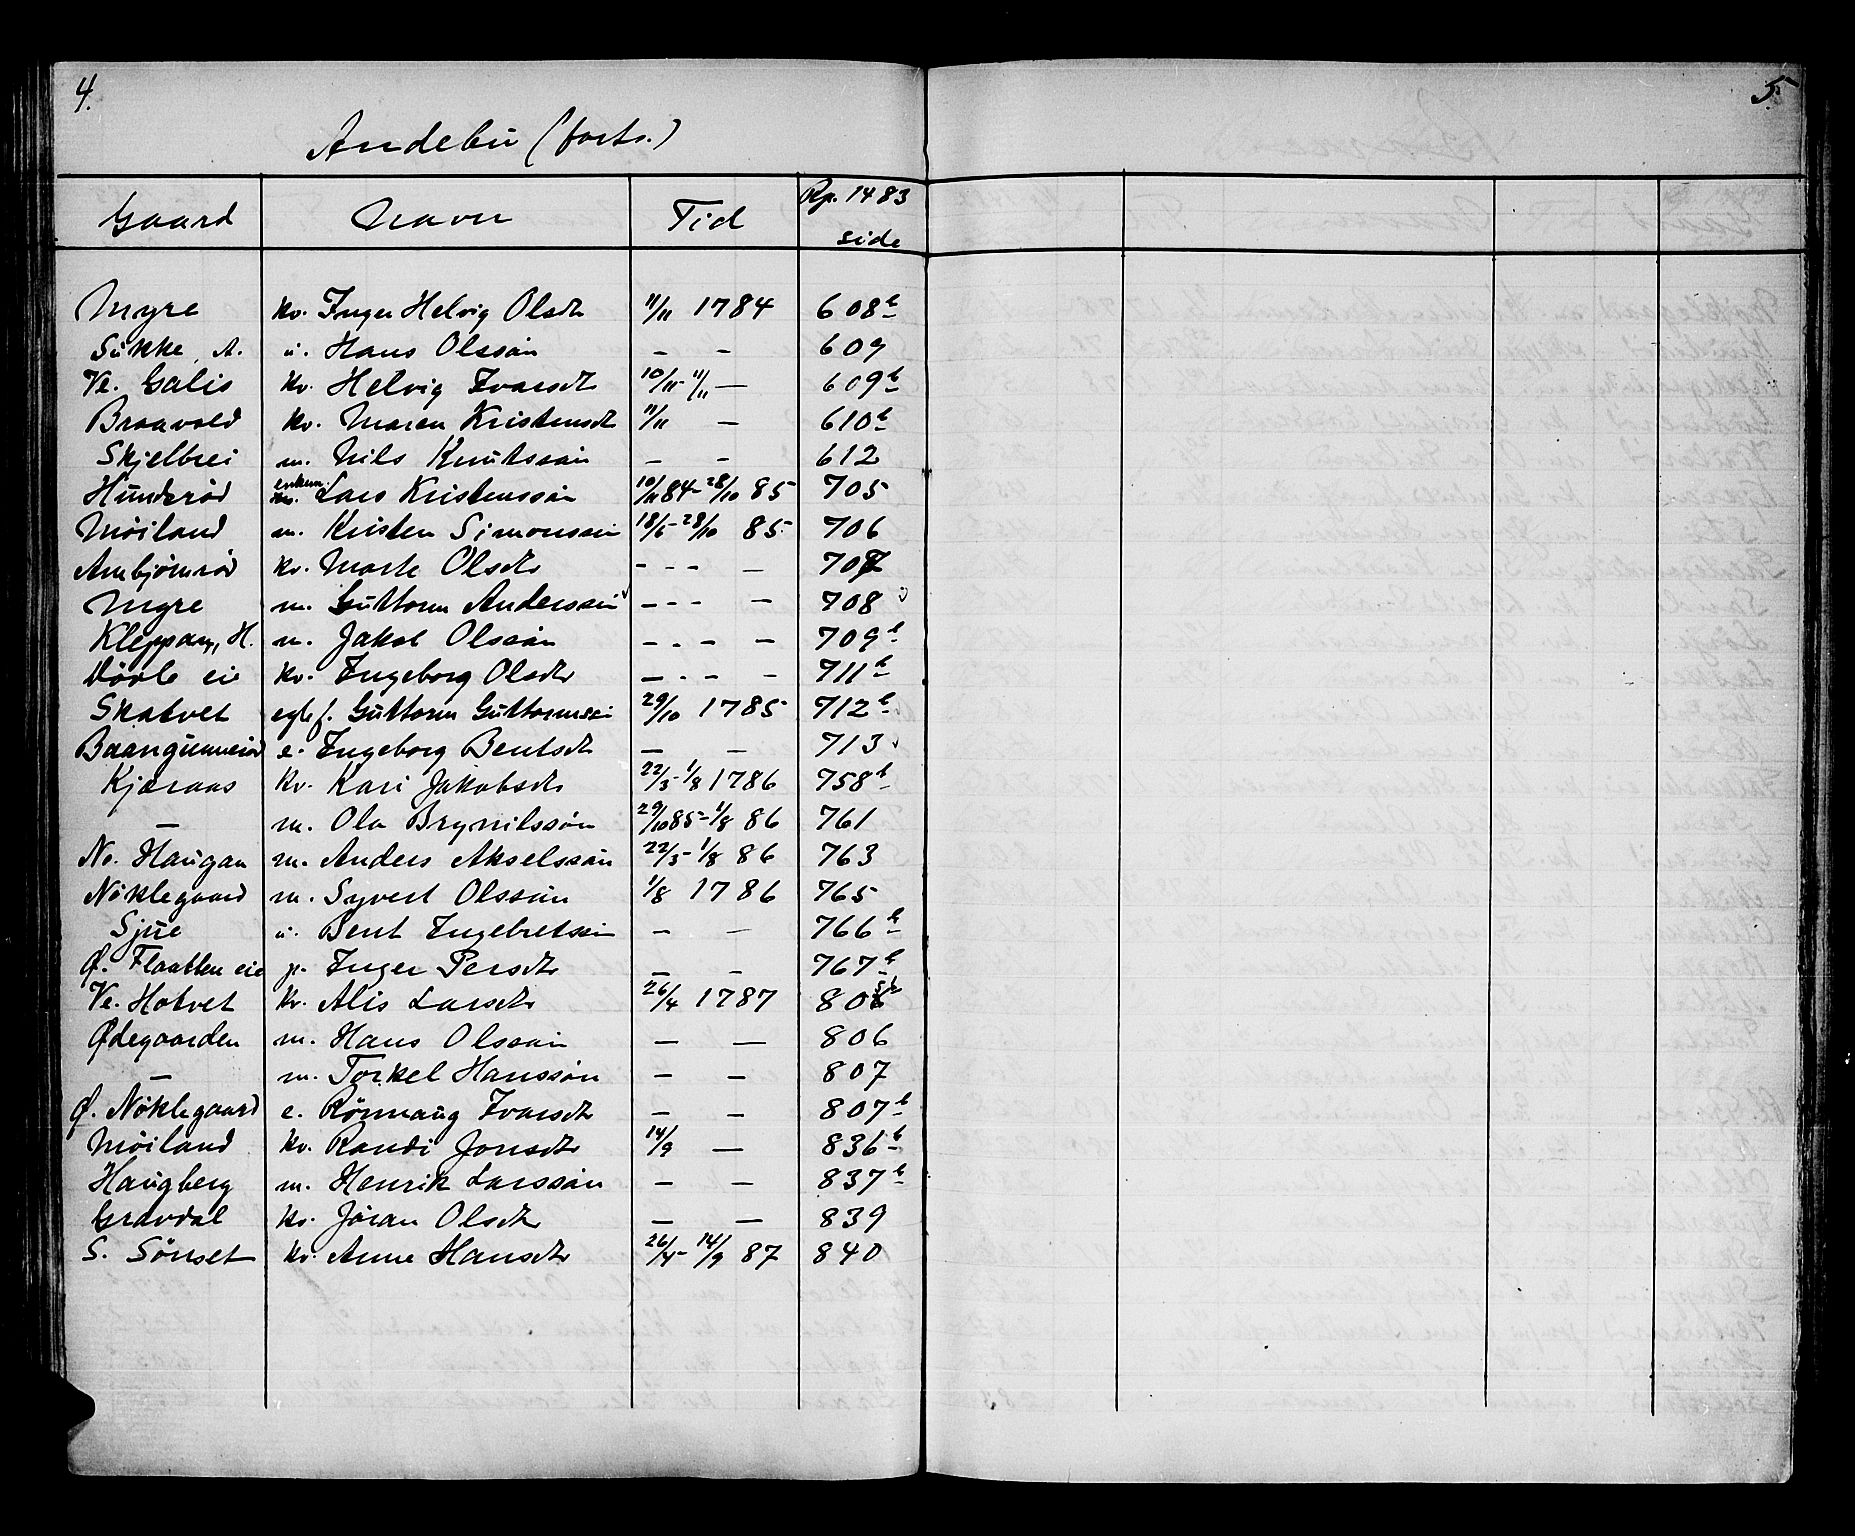 4.
5.
Andebu (forts.)
Gaard Navn Tid Rp. 1483 side
Myre kv. Inger Helvig Olsdtr 11/11 1784 608b
Sukke, A. u. Hans Olssøn — — 609
Ve. Galis kv. Helvig Ivarsdtr 10/11-11/11 — 609b
Braavold kv. Maren Kristensdtr 11/11 — 610b
Skjelbrei m. Nils Knutssøn — — 612
Hundsrød enkem. Lars Kristenssøn 10/11 84-28/10 85 705
Møiland m. Kristen Simonssøn 18/5-28/10 85 706
Arnbjørnrød kv. Marte Olsdtr - - - — 707
Myre m. Guttorm Anderssøn - - - — 708
Kleppan, H. m. Jakob Olssøn - - - — 709b
Vøvle eie kv. Ingeborg Olsdtr - - - — 711b
Skatvet f. Guttorm Guttormssøn 29/10 1785 712b
e. Ingeborg Bentsdtr — — 713
Kjæraas kv. Kari Jakobsdtr 22/3-1/8 1786 758b
— m. Ola Brynilssøn 29/10 85-1/8 86 761
No. Haugan m. Anders Akselssøn 22/3-1/8 86 763
Nøklegaard m. Syvert Olssøn 1/8 1786 765
Sjue u. Bent Ingebretssøn — — 766b
Ø. Flaatten eie p. Inger Persdtr — — 767b
Ve. Hotvet kv. Alis Larsdtr 26/4 1787 805b
Ødegaarden m. Hans Olssøn — — 806
— m. Torkel Hanssøn — — 807
Ø. Nøklegaard e. Rønnaug Ivarsdtr — — 807b
Møiland kv. Randi Jonsdtr 14/9 — 836b
Haugberg m. Henrik Larssøn — — 837b
Gravdal kv. Jøran Olsdtr — — 839
S. Sønset kv. Anne Hansdtr 26/4-14/9 87 840